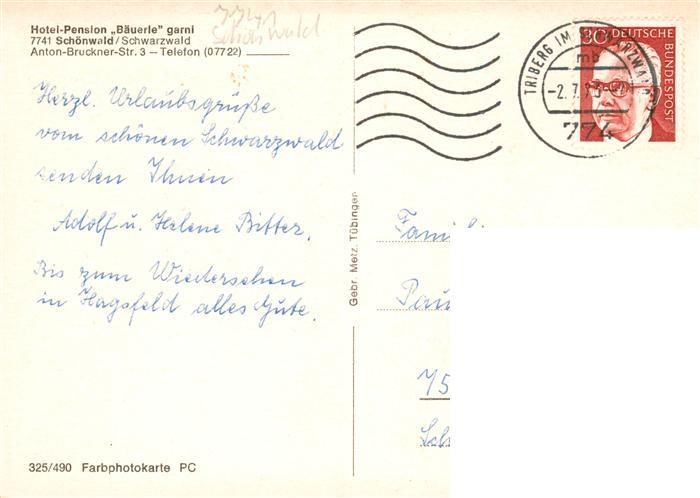 Hotel-Pension „Bäuerle" garni
7741 Schönwald/Schwarzwald
Anton-Bruckner-Str. 3 – Telefon (07722)
7741
Schönwald
Herzl. Urlaubsgrüße
vom schönen Schwarzwald
senden Ihnen
Adolf u. Helene Bitter.
Bis zum Wiedersehen
in Hagsfeld alles Gute.
325/490 Farbphotokarte PC
Gebr. Metz, Tübingen
TRIBERG IM SCHWARZWALD
mb
-2.7.
774
30
DEUTSCHE
BUNDESPOST
Famili
Pau
75
Sch